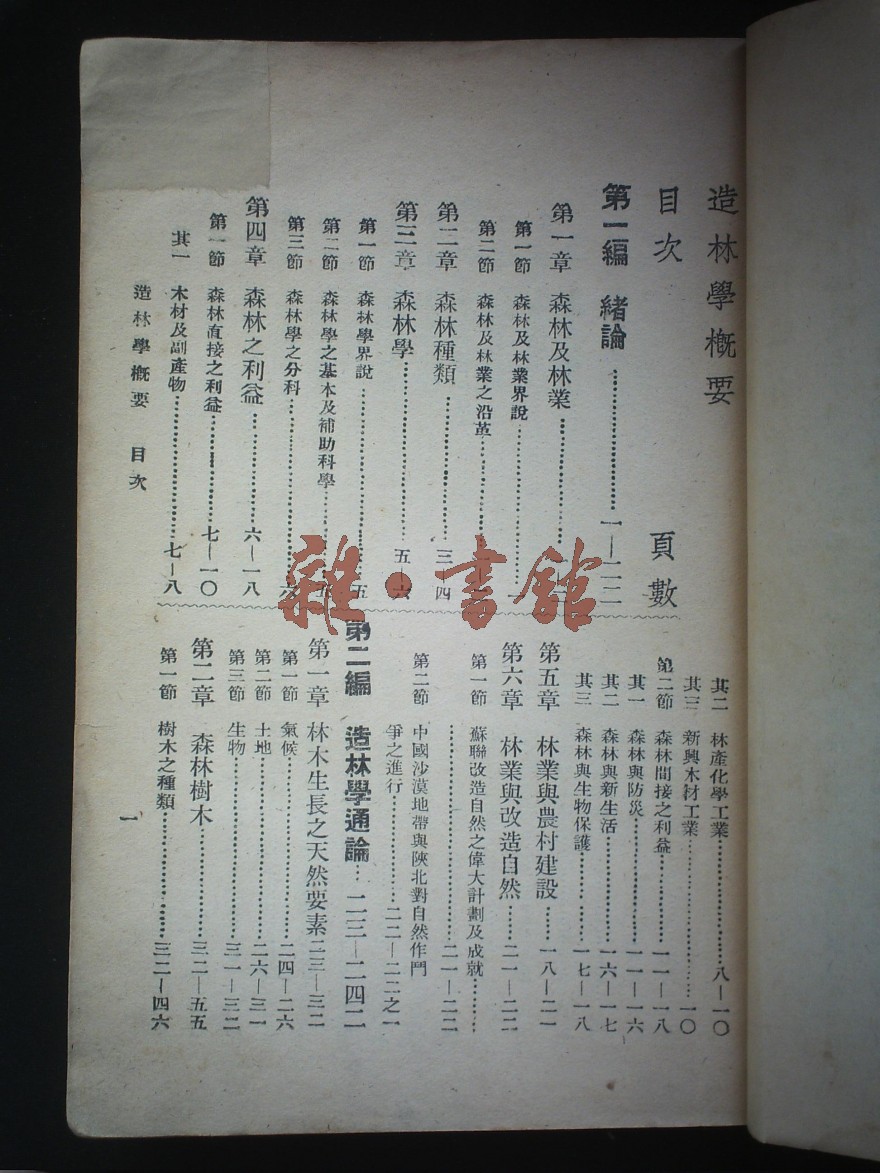 造林學概要
目次 頁數
第一編 緒論……一—二二
第一章 森林及林業……
第一節 森林及林業界說……一
第二節 森林及林業之沿革……
第二章 森林種類……三—四
第三章 森林學……五—六
第一節 森林學界說……五
第二節 森林學之基本及補助科學……五
第三節 森林學之分科……六
第四章 森林之利益……六—一八
第一節 森林直接之利益……七—一〇
其一 木材及副產物……七—八
其二 林產化學工業……八—一〇
其三 新興木材工業……一〇
第二節 森林間接之利益……一一—一八
其一 森林與防災……一一—一六
其二 森林與新生活……一六—一七
其三 森林與生物保護……一七—一八
第五章 林業與農村建設……一八—二一
第六章 林業與改造自然……二一—二二
第一節 蘇聯改造自然之偉大計劃及成就……
……二一—二二
第二節 中國沙漠地帶與陝北對自然作鬥
爭之進行……二二—二二之一
第二編 造林學通論…二三—二四二
第一章 林木生長之天然要素二三—三二
第一節 氣候……二四—二六
第二節 土地……二六—三一
第三節 生物……三一—三二
第二章 森林樹木……三二—五五
第一節 樹木之種類……三二—四六
造林學概要 目次
一
雜·書館